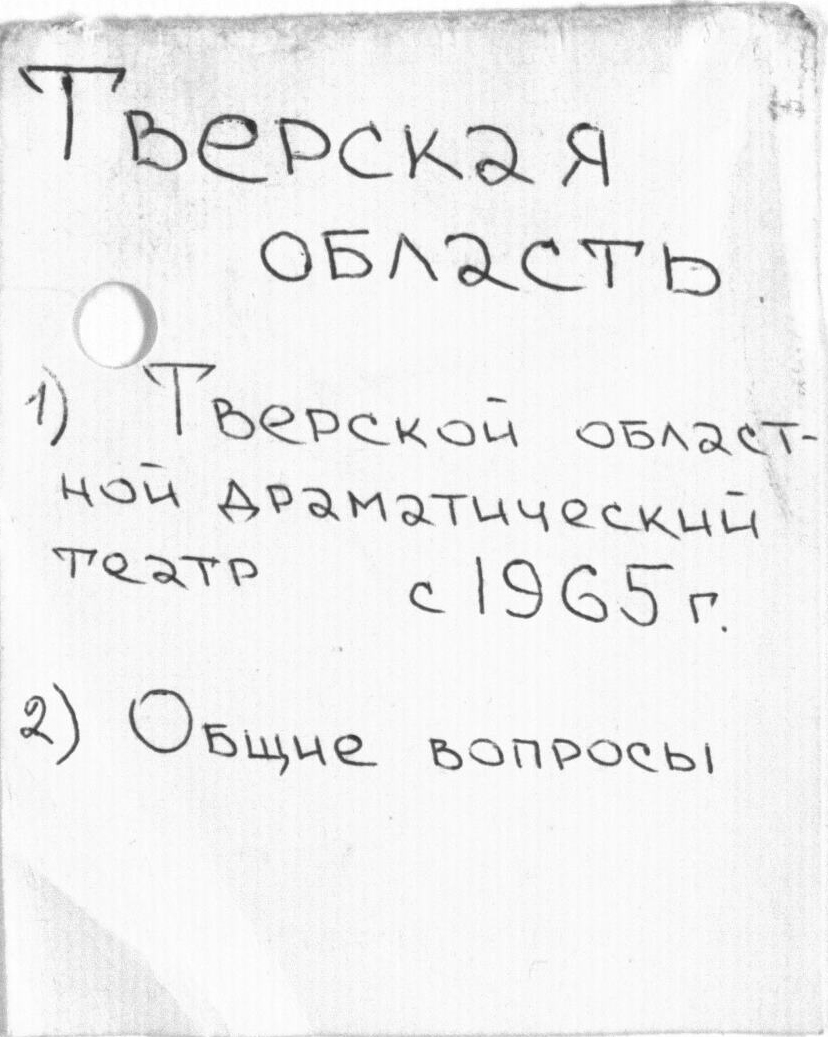 Тверская
область
1) Тверской област-
ной драматический
театр с 1965 г.
2) Общие вопросы